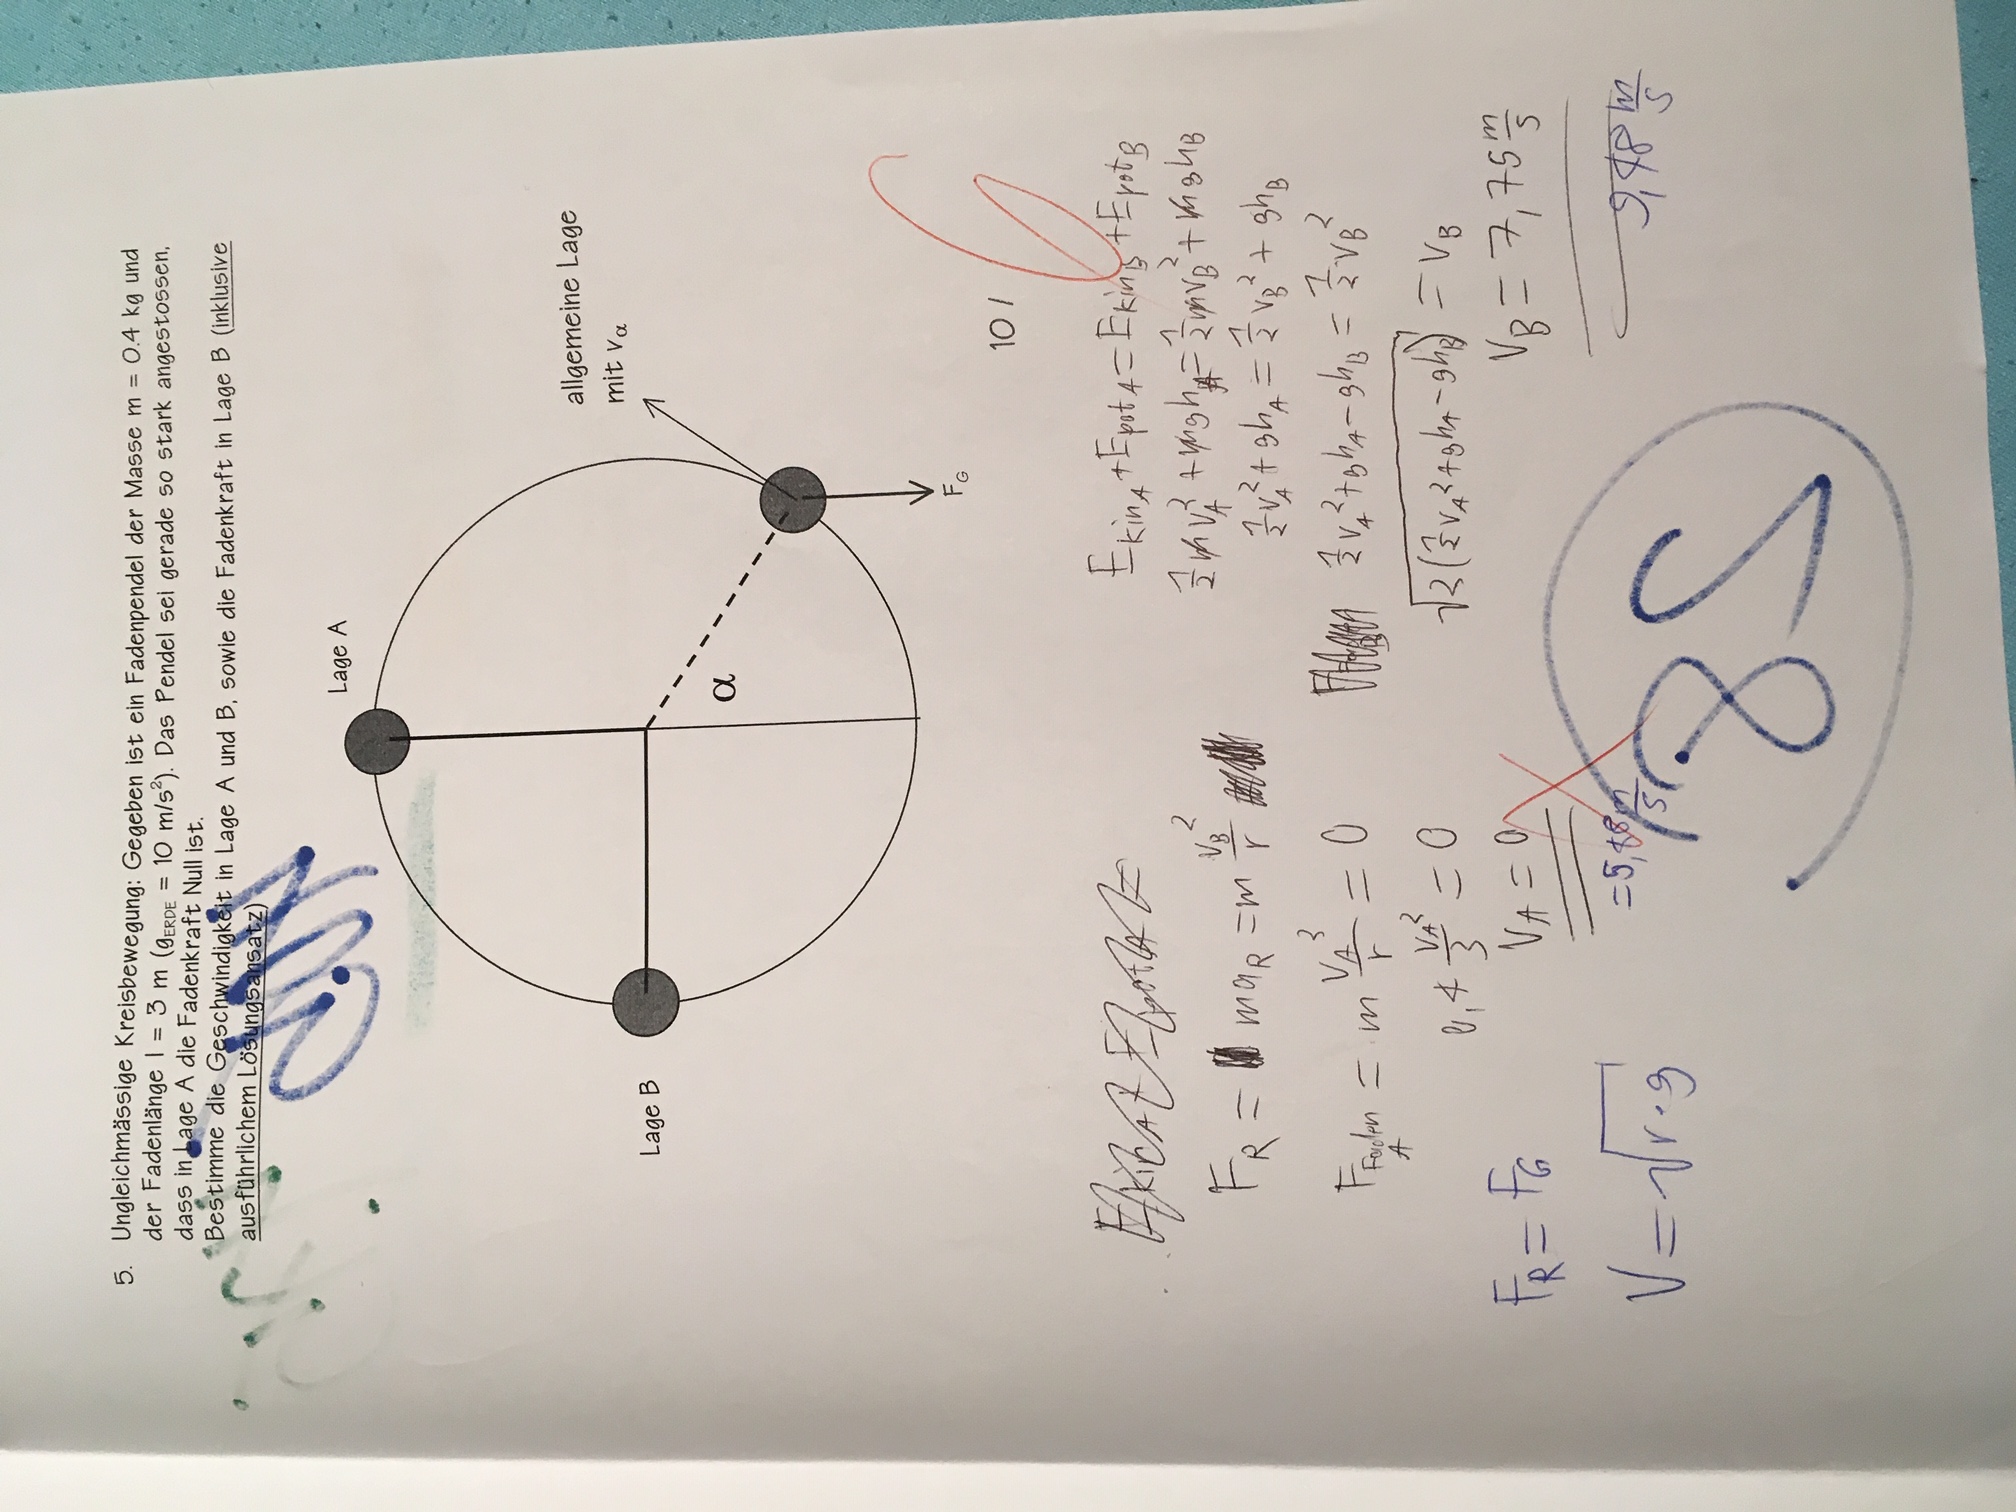 5. Ungleichmässige Kreisbewegung: Gegeben ist ein Fadenpendel der Masse m = 0.4 kg und
der Fadenlänge l = 3 m (gERDE = 10 m/s²). Das Pendel sei gerade so stark angestossen,
dass in Lage A die Fadenkraft Null ist.
Bestimme die Geschwindigkeit in Lage A und B, sowie die Fadenkraft in Lage B (inklusive
ausführlichem Lösungsansatz)
Lage A
allgemeine Lage
mit vα
Lage B
α
FG
10 / 6
EkinA + EpotA =
FR = maR = m vB²/r
FFaden A = m vA²/r = 0
0,4 vA²/3 = 0
VA = 0
= 5,48 m/s
FR = FG
V = √r·g
EkinA + EpotA = EkinB + EpotB
1/2 m vA² + mghA = 1/2 m vB² + mghB
1/2 vA² + ghA = 1/2 vB² + ghB
1/2 vA² + ghA - ghB = 1/2 vB²
√2(1/2 vA² + ghA - ghB) = vB
VB = 7,75 m/s
9,48 m/s
28